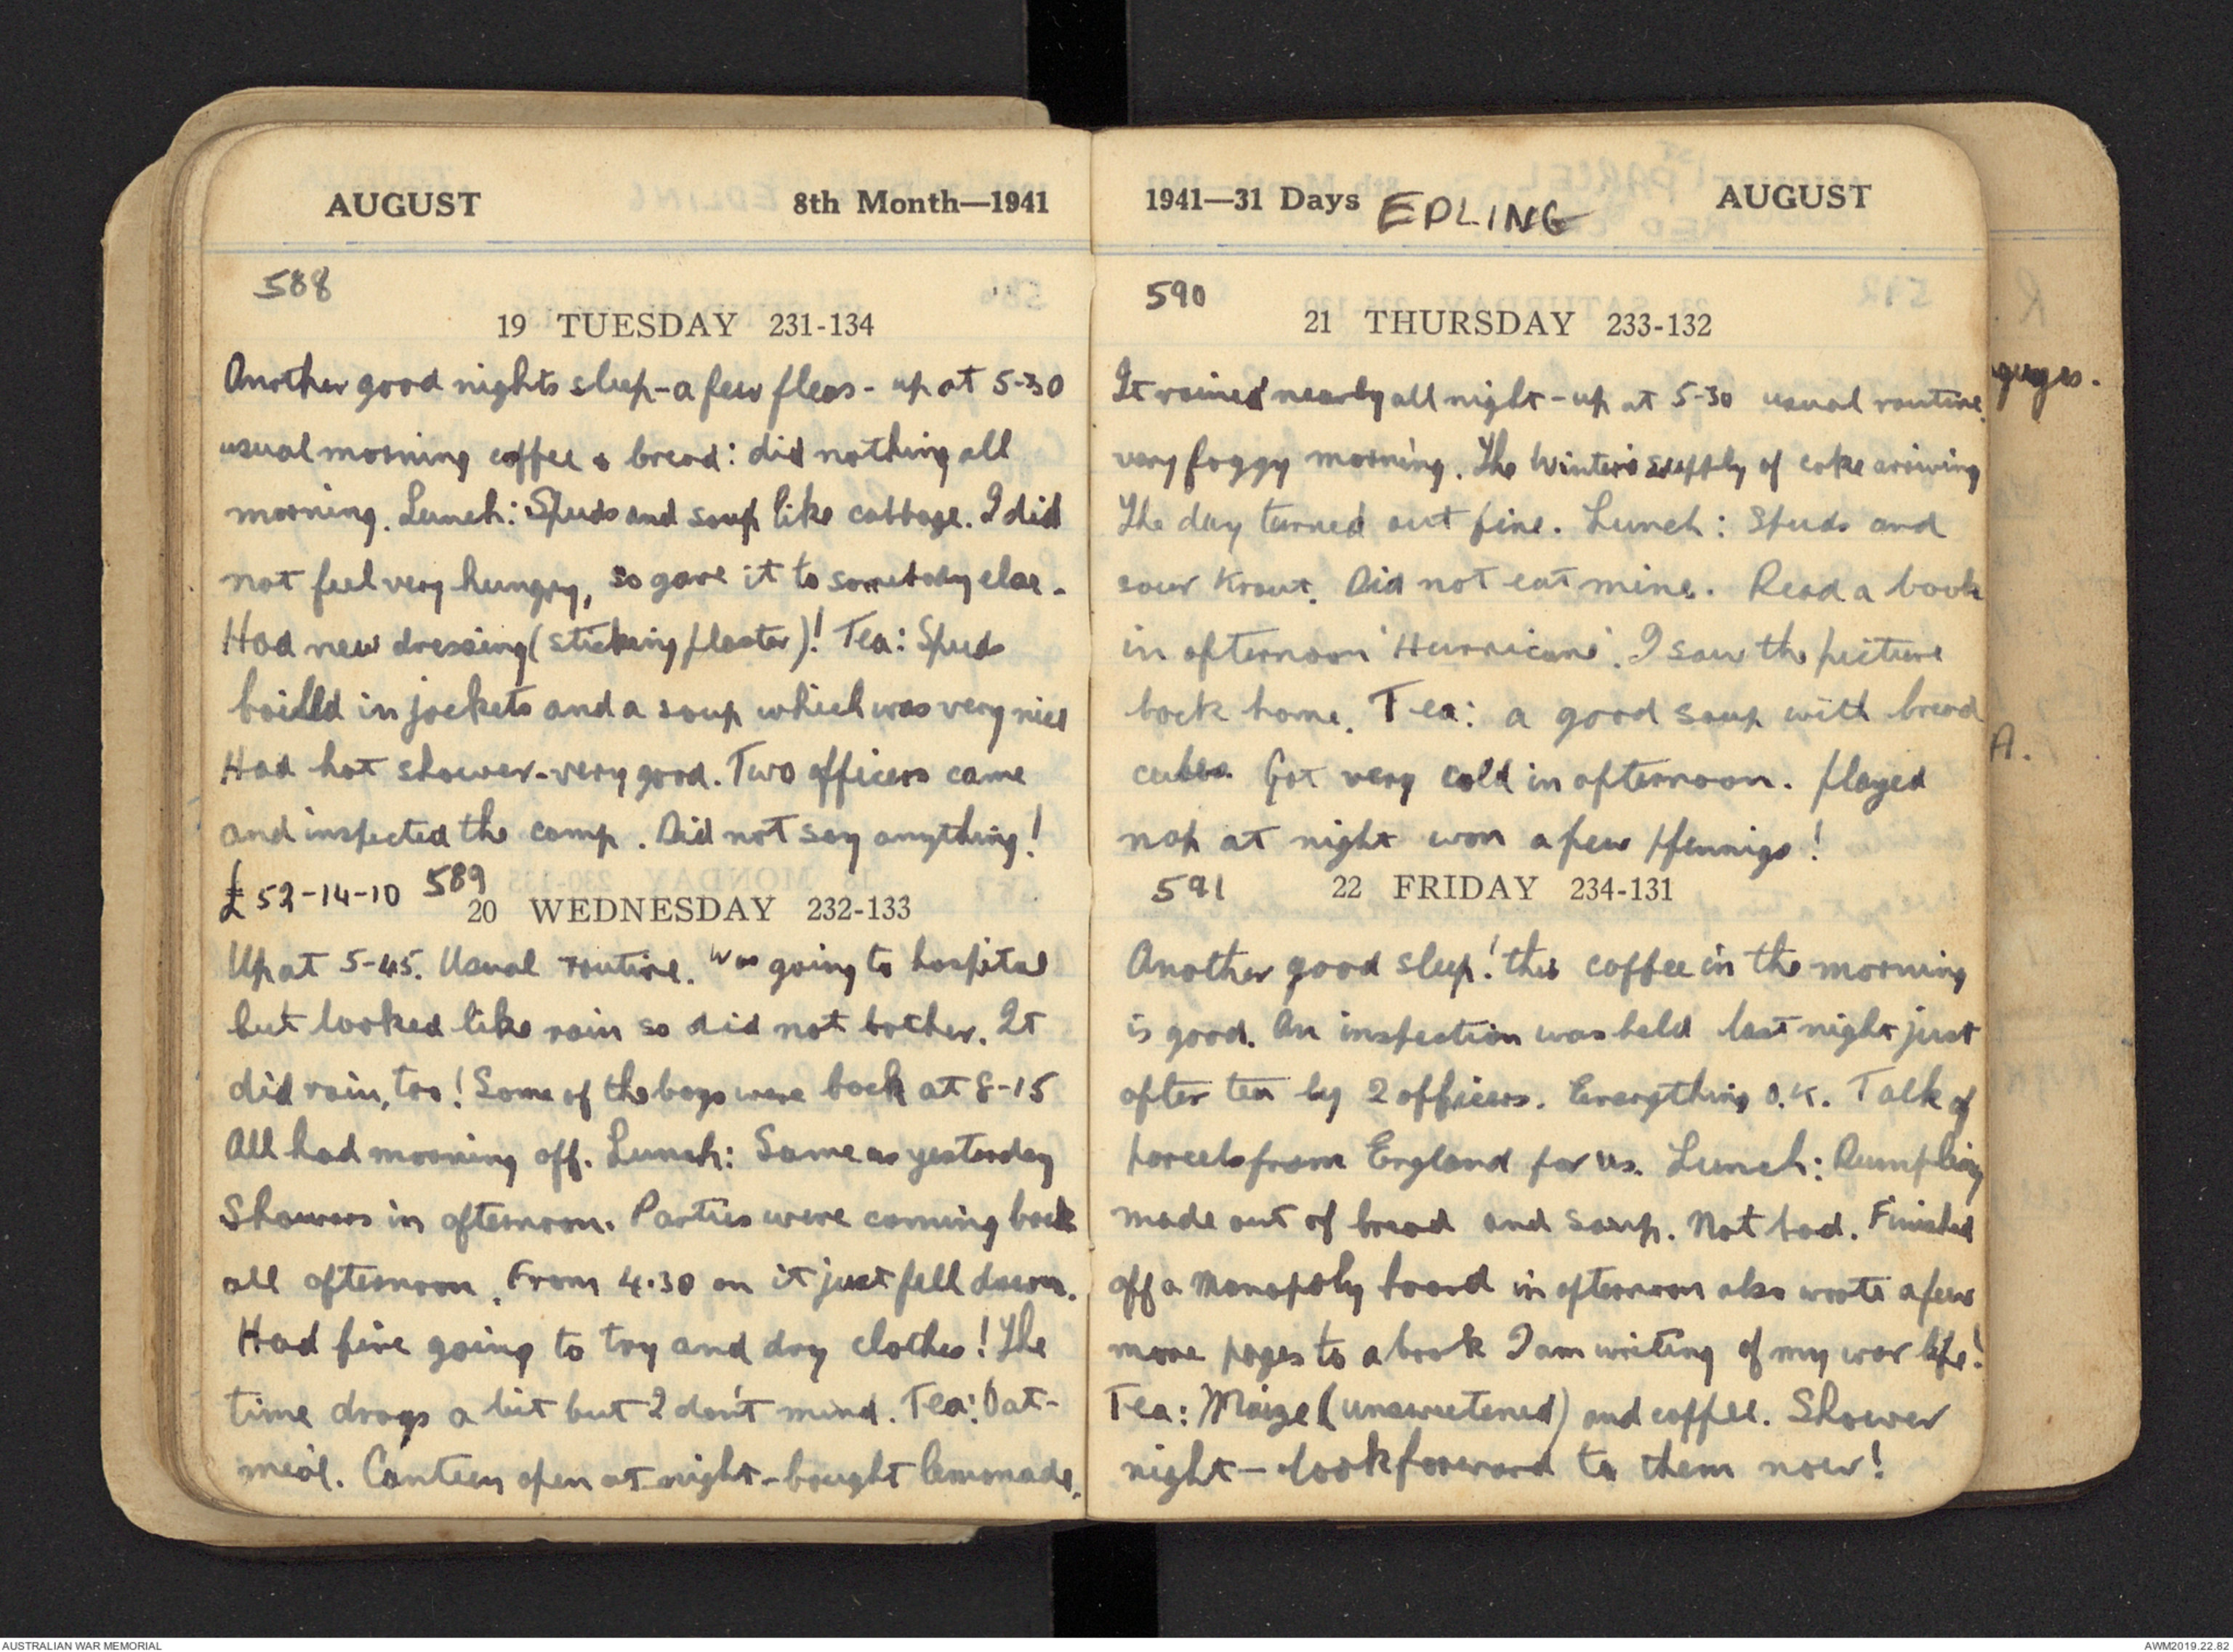 AUGUST 8th Month—1941
588
19 TUESDAY 231-134
Another good nights sleep - a few fleas - up at 5-30
usual morning coffee & bread: did nothing all
morning. Lunch: Spuds and soup like cabbage. I did
not feel very hungry, so gave it to somebody else.
Had new dressing (sticking plaster)! Tea: Spuds
boiled in jackets and a soup which was very nice
Had hot shower - very good. Two officers came
and inspected the camp. Did not say anything!
£52-14-10 589
20 WEDNESDAY 232-133
Up at 5-45. Usual routine. Was going to hospital
but looked like rain so did not bother. It
did rain, too! Some of the boys were back at 8-15
All had morning off. Lunch: Same as yesterday
Showers in afternoon. Parties were coming back
all afternoon. From 4.30 on it just fell down.
Had fire going to try and dry clothes! The
time drags a bit but I don't mind. Tea: Oat-
meal. Canteen open at night - bought lemonade.
1941—31 Days EPLING AUGUST
590
21 THURSDAY 233-132
It rained nearly all night - up at 5-30 usual routine.
very foggy morning. The Winter's supply of coke arriving
The day turned out fine. Lunch: Spuds and
sour Kraut. Did not eat mine. Read a book
in afternoon 'Hurricane'. I saw the picture
back home. Tea: a good soup with bread
cubes. Got very cold in afternoon. played
nap at night won a few pfennigs!
591 22 FRIDAY 234-131
Another good sleep! this coffee in the morning
is good. An inspection was held last night just
after tea by 2 officers. Everything O.K. Talk of
parcels from England for us. Lunch: Dumpling
made out of bread and soup. Not bad. Finished
off a Monopoly board in afternoon also wrote a few
more pages to a book I am writing of my war life!
Tea: Maize (unsweetened) and coffee. Shower
night - look forward to them now!
A.
AUSTRALIAN WAR MEMORIAL AWM2019.22.82